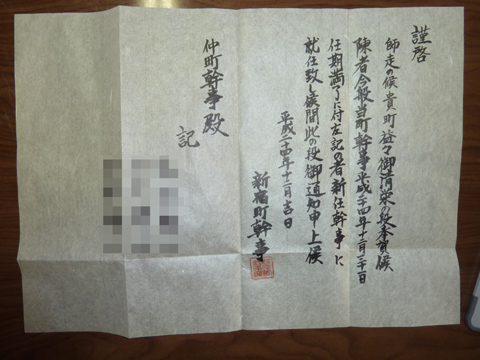 謹啓
師走の候貴町益々御清栄の段奉賀候
陳者今般当町幹事平成二十四年十二月三十一日
任期満了に付左記の者新任幹事に
就任致し候間此の段御通知申上候
平成二十四年十二月吉日
新宿町幹事
仲町幹事殿
記